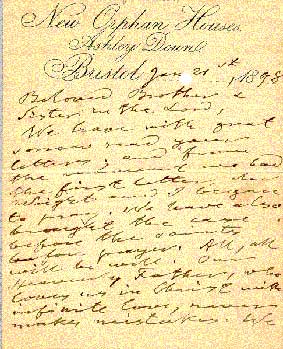 New Orphan Houses
Ashley Down
Bristol Jan 21st, 1898
Beloved Brother &
Sister in the Lord,
We have with great
sorrow read your
letters; and from
the moment we had
the first letter
and I began
to pray. We have also
brought the case
before the saints
for prayer. All, all
will be well. Our
Heavenly Father, who
loves us in Christ with
infinite love, never
makes mistakes. We